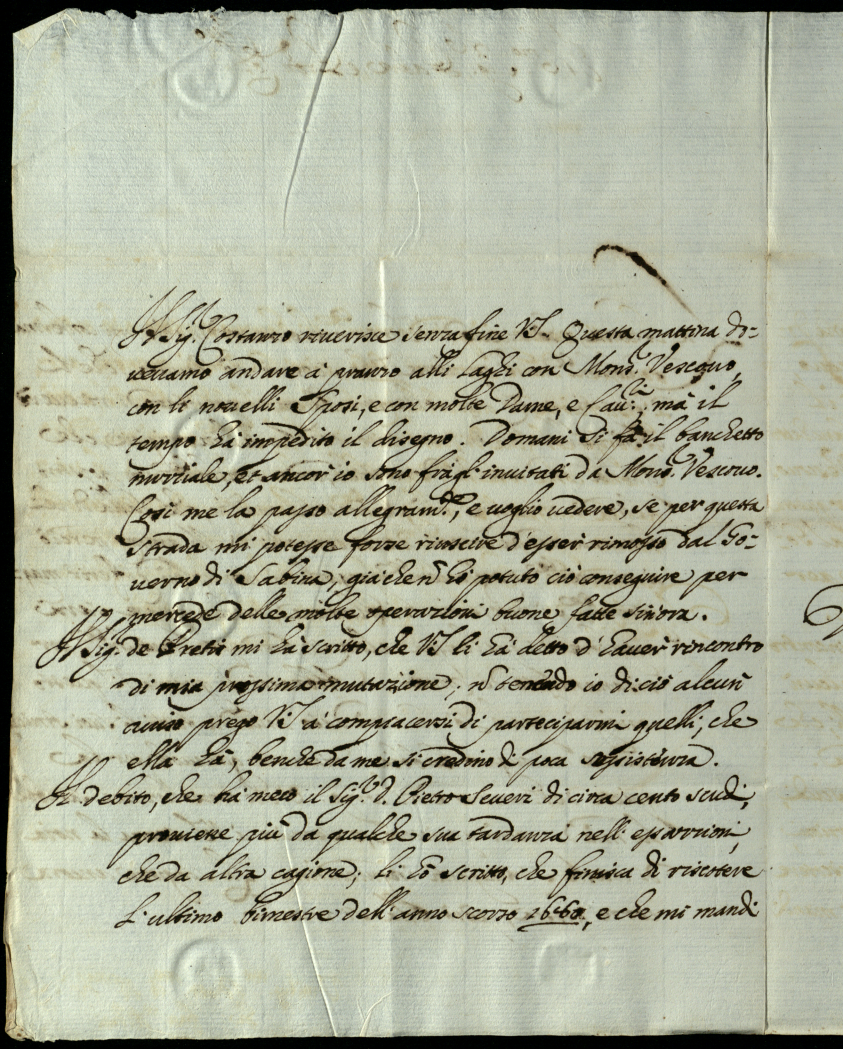 Il Sig.r Costanzo riuerisce senza fine VS. Questa mattina do=
ueuamo andare à pranzo alli Laghi con Mons.r Vescouo,
con li nouelli Sposi, e con molte Dame, e Cau.ri, mà il
tempo hà impedito il disegno. Domani si fà il banchetto
nuzziale, et ancor io sono frà gl'inuitati da Mons.r Vescouo.
Così me la passo allegram.te, e uoglio uedere, se per questa
strada mi potesse forze riuscire d'esser rimosso dal Go=
uerno di Sabina, già che nõ hò potuto ciò conseguire per
mercede delle molte operazioni buone fatte sin'ora.
Il Sig.r de Pretis mi hà scritto, che VS. li hà detto d'hauer rincontro
di mia prossima mutazione; nõ tenendo io di ciò alcun
auuiso prego VS. à compiacersi di parteciparmi quelli, che
ella hà, benche da me si credino di poca sussistenza.
Il debito, che hà meco il Sig.r D. Pietro Seueri di circa cento scudi,
prouiene più da qualche sua tardanza nell'esazzioni,
che da altra cagione; li hò scritto, che finisca di riscotere
l'ultimo bimestre dell'anno scorso 1660, e che mi mandi